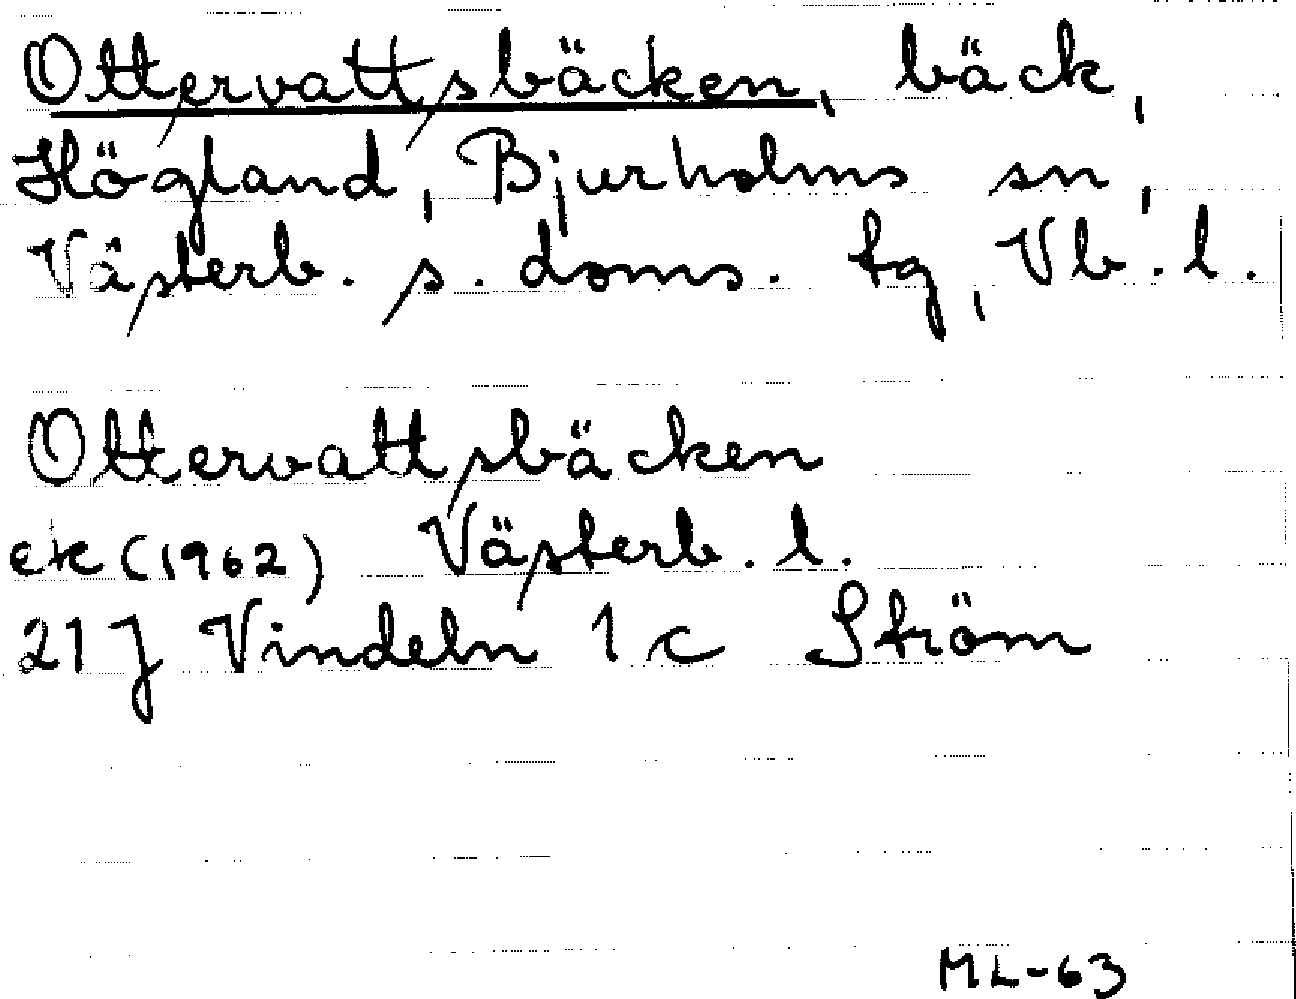 Ottervattsbäcken, bäck,
Högland, Bjurholms sn,
Västerb. s. doms. tg, Vb. l.
Ottervattsbäcken
ek (1962) Västerb. l.
21J Vindeln 1c Ström
ML-63